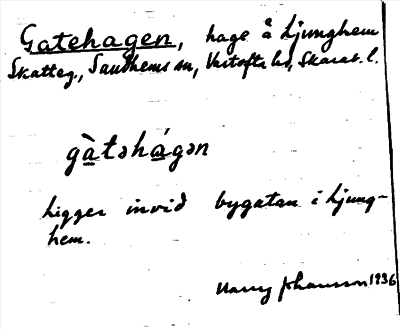 Gatehagen, hage å Ljunghem
Skatteg., Sandhems sn, Vartofta hd, Skarab. l.
gàtəhágən
Ligger invid bygatan i Ljung-
hem.
Harry Johansson 1936